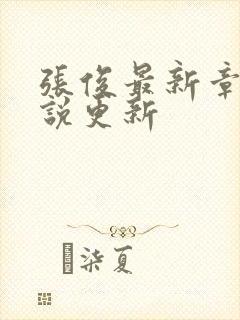 張俊最新章
說更新
柒夏